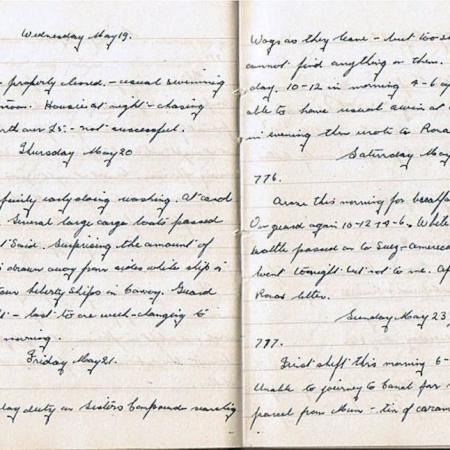 Wednesday May 19.
- properly closed. - usual swimming
Housie at night - chasing
worth over £5. - not successful.
Thursday May 20
fairly early doing washing. At card
Several large cargo boats passed
t Said. Surprising the amount of
drawn away from sides while ship is
four Liberty Ships in convoy. Guard
- last to are week - changing to
morning.
Friday May 21.
day duty on Sisters Compound searching
Wogs as they leave - but too
cannot find anything on them.
day. 10-12 in morning 4-6
able to have usual swim at
in evening then wrote to
Saturday May
776.
Arose this morning for breakfa
On guard again 10-12 & 4-6. White
passed on to Suez - America
went tonight but not to me.
letter.
Sunday May 23
777.
First shift this morning 6-
Unable to journey to Canal for
parcel from Mum - tin of caram